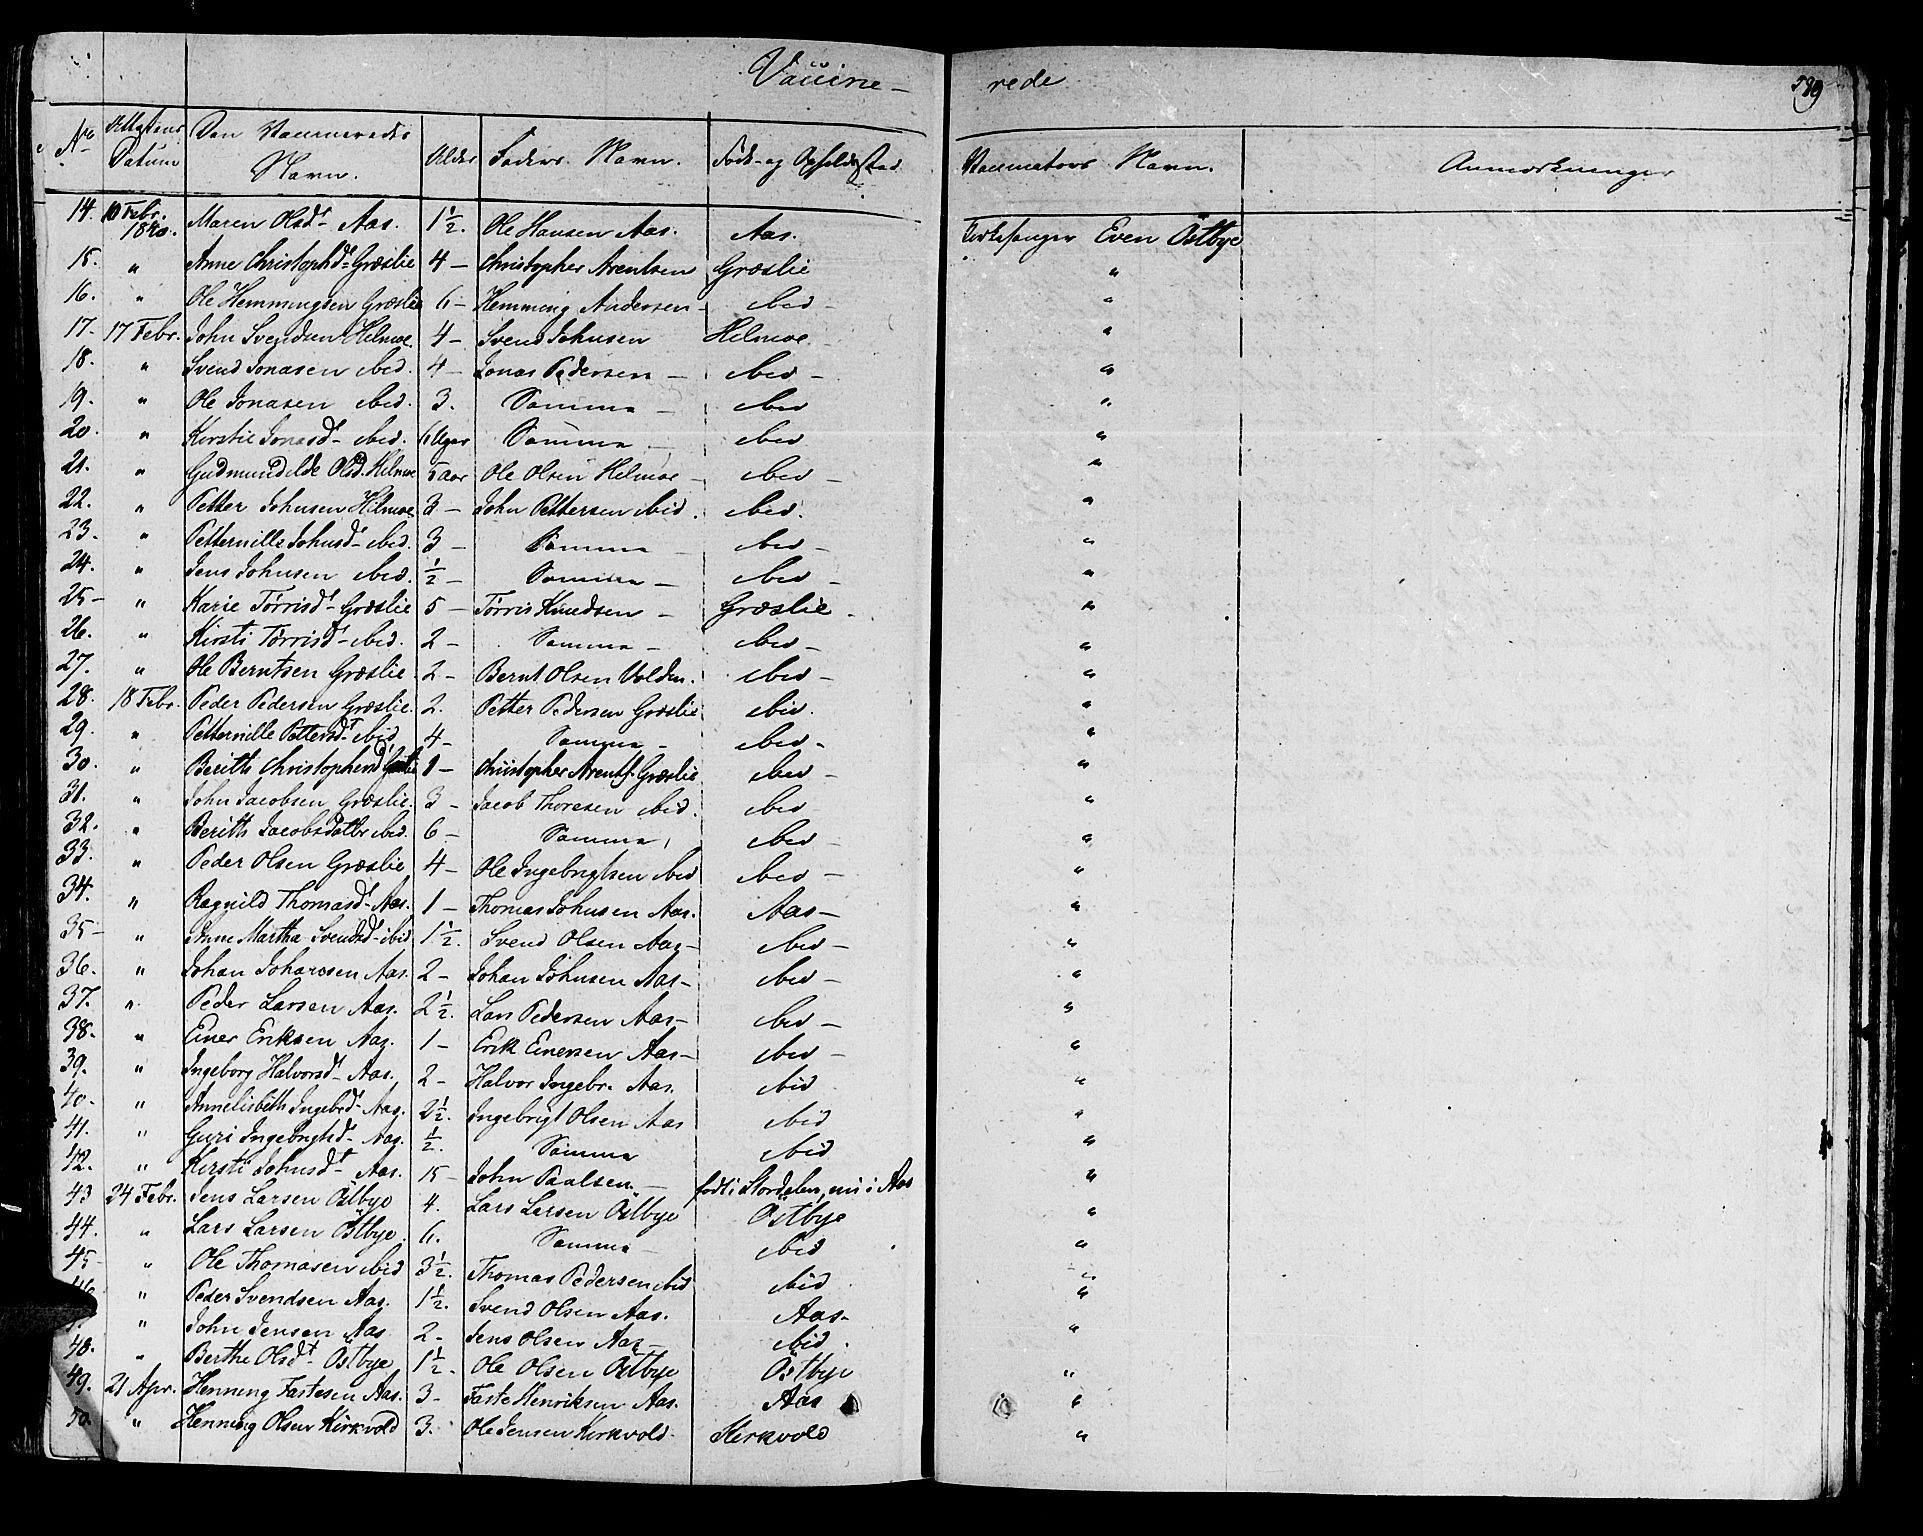 Vaccine- rede 589
No Attestens Datum Den Vaccineredes Navn. Alder Faders Navn. Føde- og Opholdssted Vaccinateurs Navn. Anmærkninger
14. 10 Febr. 1840. Maren Olsdt Aas. 1½. Ole Hansen Aas. Aas. Kirkesanger Even Östbye
15. " Anne Christophdt Græslie 4 - Christopher Arentsen Græslie "
16. " Ole Hemmingsen Græslie 6 - Hemming Andersen - ibid - "
17. 17 Febr. John Svendsen Helmoe 4 - Svend Johnsen Helmoe - "
18. " Svend Jonasen ibid. 4 - Jonas Pedersen - ibid - "
19. " Ole Jonasen ibid. 3. Samma - ibid "
20. " Kirstie Jonasdt ibid. 6 Uger Samma - ibid "
21. " Gudmundilde Olsd. Helmoe 5 Aar Ole Olsen Helmoe - ibid - "
22. " Petter Johnsen Helmoe 3 - John Pettersen ibid. ibid. "
23. " Petternille Johnsdt ibid. 3 - Samma - ibid - "
24. " Jens Johnsen ibid. ½ - Samma - ibid - "
25 - " Karie Tørrisdt Græslie 5 - Tørris Knudsen - Græslie - "
26. " Kirsti Tørrisdt ibid. 2 - Samma - ibid - "
27. " Ole Berntsen Græslie 2 - Bernt Olsen Volden. ibid - "
28. 18 Febr. Peder Pedersen Græslie. 2. Petter Pedersen Græslie ibid. "
29. " Petternille Pettersdt ibid 4 - Samma - ibid - "
30. " Berith Christophersdt Græslie 1 - Christopher Arents. Græslie ibid - "
31. " John Jacobsen Græslie. 3 - Jacob Thoresen ibid. ibid "
32. " Berith Jacobsdatter ibid. 6 - Samma, ibid - "
33. " Peder Olsen Græslie 4 - Ole Ingebrigtsen ibid ibid - "
34. " Ragnild Thomasdt Aas. 1 - Thomas Johnsen Aas. Aas - "
35 - " Anne Martha Svendsdt ibid 1½. Svend Olsen Aas - ibid - "
36. " Johan Johansen Aas. 2 - Johan Johnsen Aas - ibid - "
37. " Peder Larsen Aas. 2½. Lars Pedersen Aas - ibid - "
38. " Einer Eriksen Aas. 1 - Erik Einersen Aas - ibid - "
39. " Ingeborg Halvorsdt Aas. 2 - Halvor Ingebr. Aas. ibid "
40. " Annelisbeth Ingebrdt Aas. 2½. Ingebrigt Olsen Aas ibid "
41. " Guri Ingebrigtsdt Aas. ½. Samma ibid "
42. " Kirsti Johnsdt Aas. 15 - John Paalsen. - født i Stordalen, nu i Aas "
43 24 Febr. Jens Larsen Östbye 4. Lars Larsen Östbye Östbye "
44. " Lars Larsen Östbye. 6. Samma - ibid "
45 - " Ole Thomasen ibid 3½. Thomas Pedersen ibid ibid "
46 " Peder Svendsen Aas. 1½. Svend Olsen Aas. Aas - "
" John Jensen Aas 2 - Jens Olsen Aas - ibid. "
48. " Berthe Olsdt Östbye 1½. Ole Olsen Östbye Östbye "
49. 21 Apr. Henning Fastesen Aas. 3 - Faste Henriksen Aas. Aas "
50. " Henning Olsen Kirkvold 3. Ole Jensen Kirkvold Kirkvold "